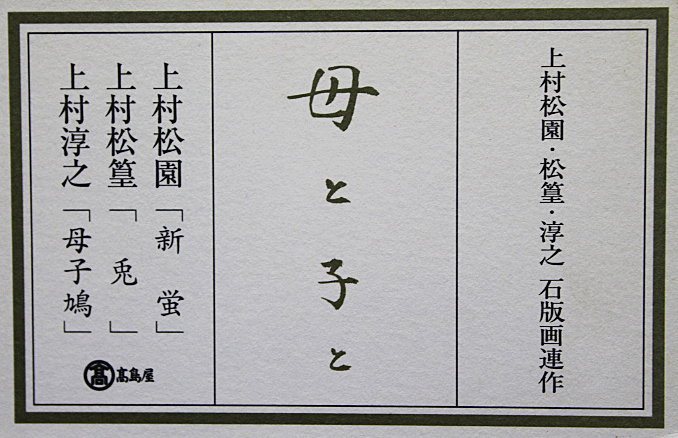 上村松園・松篁・淳之 石版画連作
母と子と
上村松園「新 蛍」
上村松篁「 兎 」
上村淳之「母子鳩」
髙 髙島屋